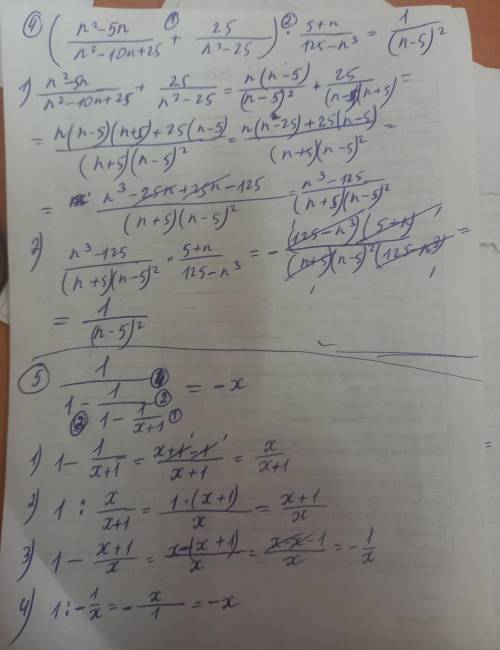 ④ ( (n²-5n)/(n²-10n+25) +① 25/(n²-25) ) ·② (5+n)/(125-n³) = 1/(n-5)²
1) (n²-5n)/(n²-10n+25) + 25/(n²-25) = n(n-5)/(n-5)² + 25/((n-5)(n+5)) =
= (n(n-5)(n+5)+25(n-5))/((n+5)(n-5)²) = (n(n²-25)+25(n-5))/((n+5)(n-5)²) =
= (n³-25n+25n-125)/((n+5)(n-5)²) = (n³-125)/((n+5)(n-5)²)
2) (n³-125)/((n+5)(n-5)²) · (5+n)/(125-n³) = - ((125-n³)(5+n))/((n+5)(n-5)²(125-n³)) =
= 1/(n-5)²
⑤ 1/(1 - 1/(1 - 1/(x+1))) = -x
1) 1 - 1/(x+1) = (x+1-1)/(x+1) = x/(x+1)
2) 1 : x/(x+1) = 1·(x+1)/x = (x+1)/x
3) 1 - (x+1)/x = (x-(x+1))/x = (x-x-1)/x = -1/x
4) 1 : -1/x = -x/1 = -x